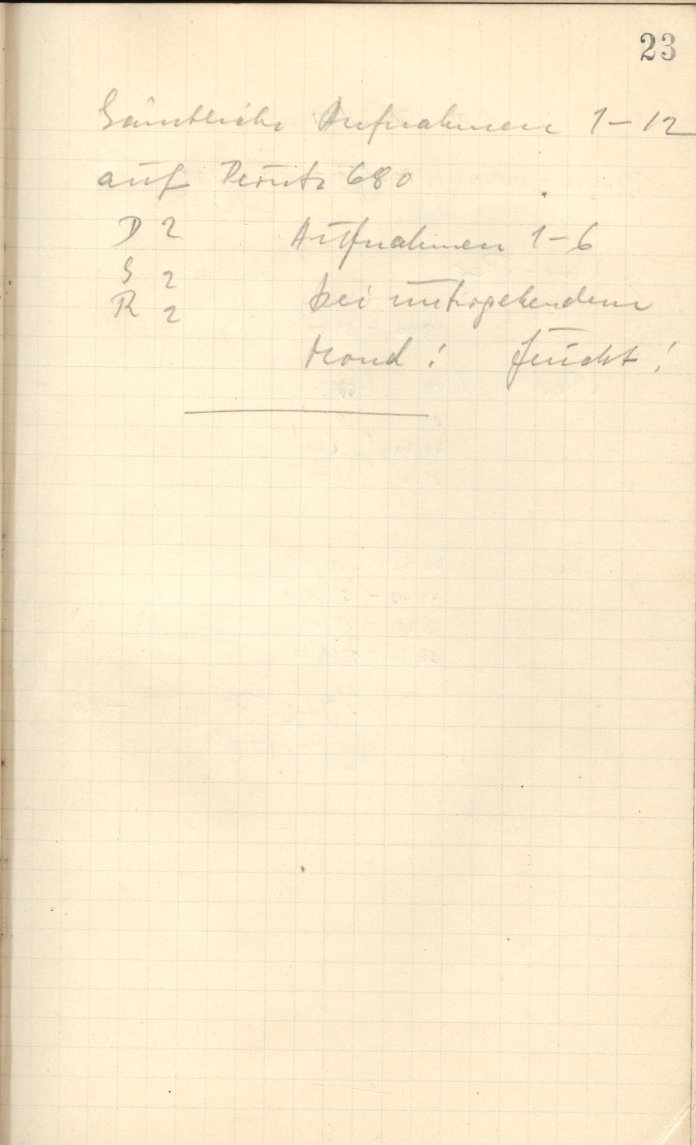 23
Sämtliche Aufnahmen 1-12
auf Perutz 680
D 2 Aufnahmen 1-6
S 2
R 2 bei untergehendem
Mond! feucht!